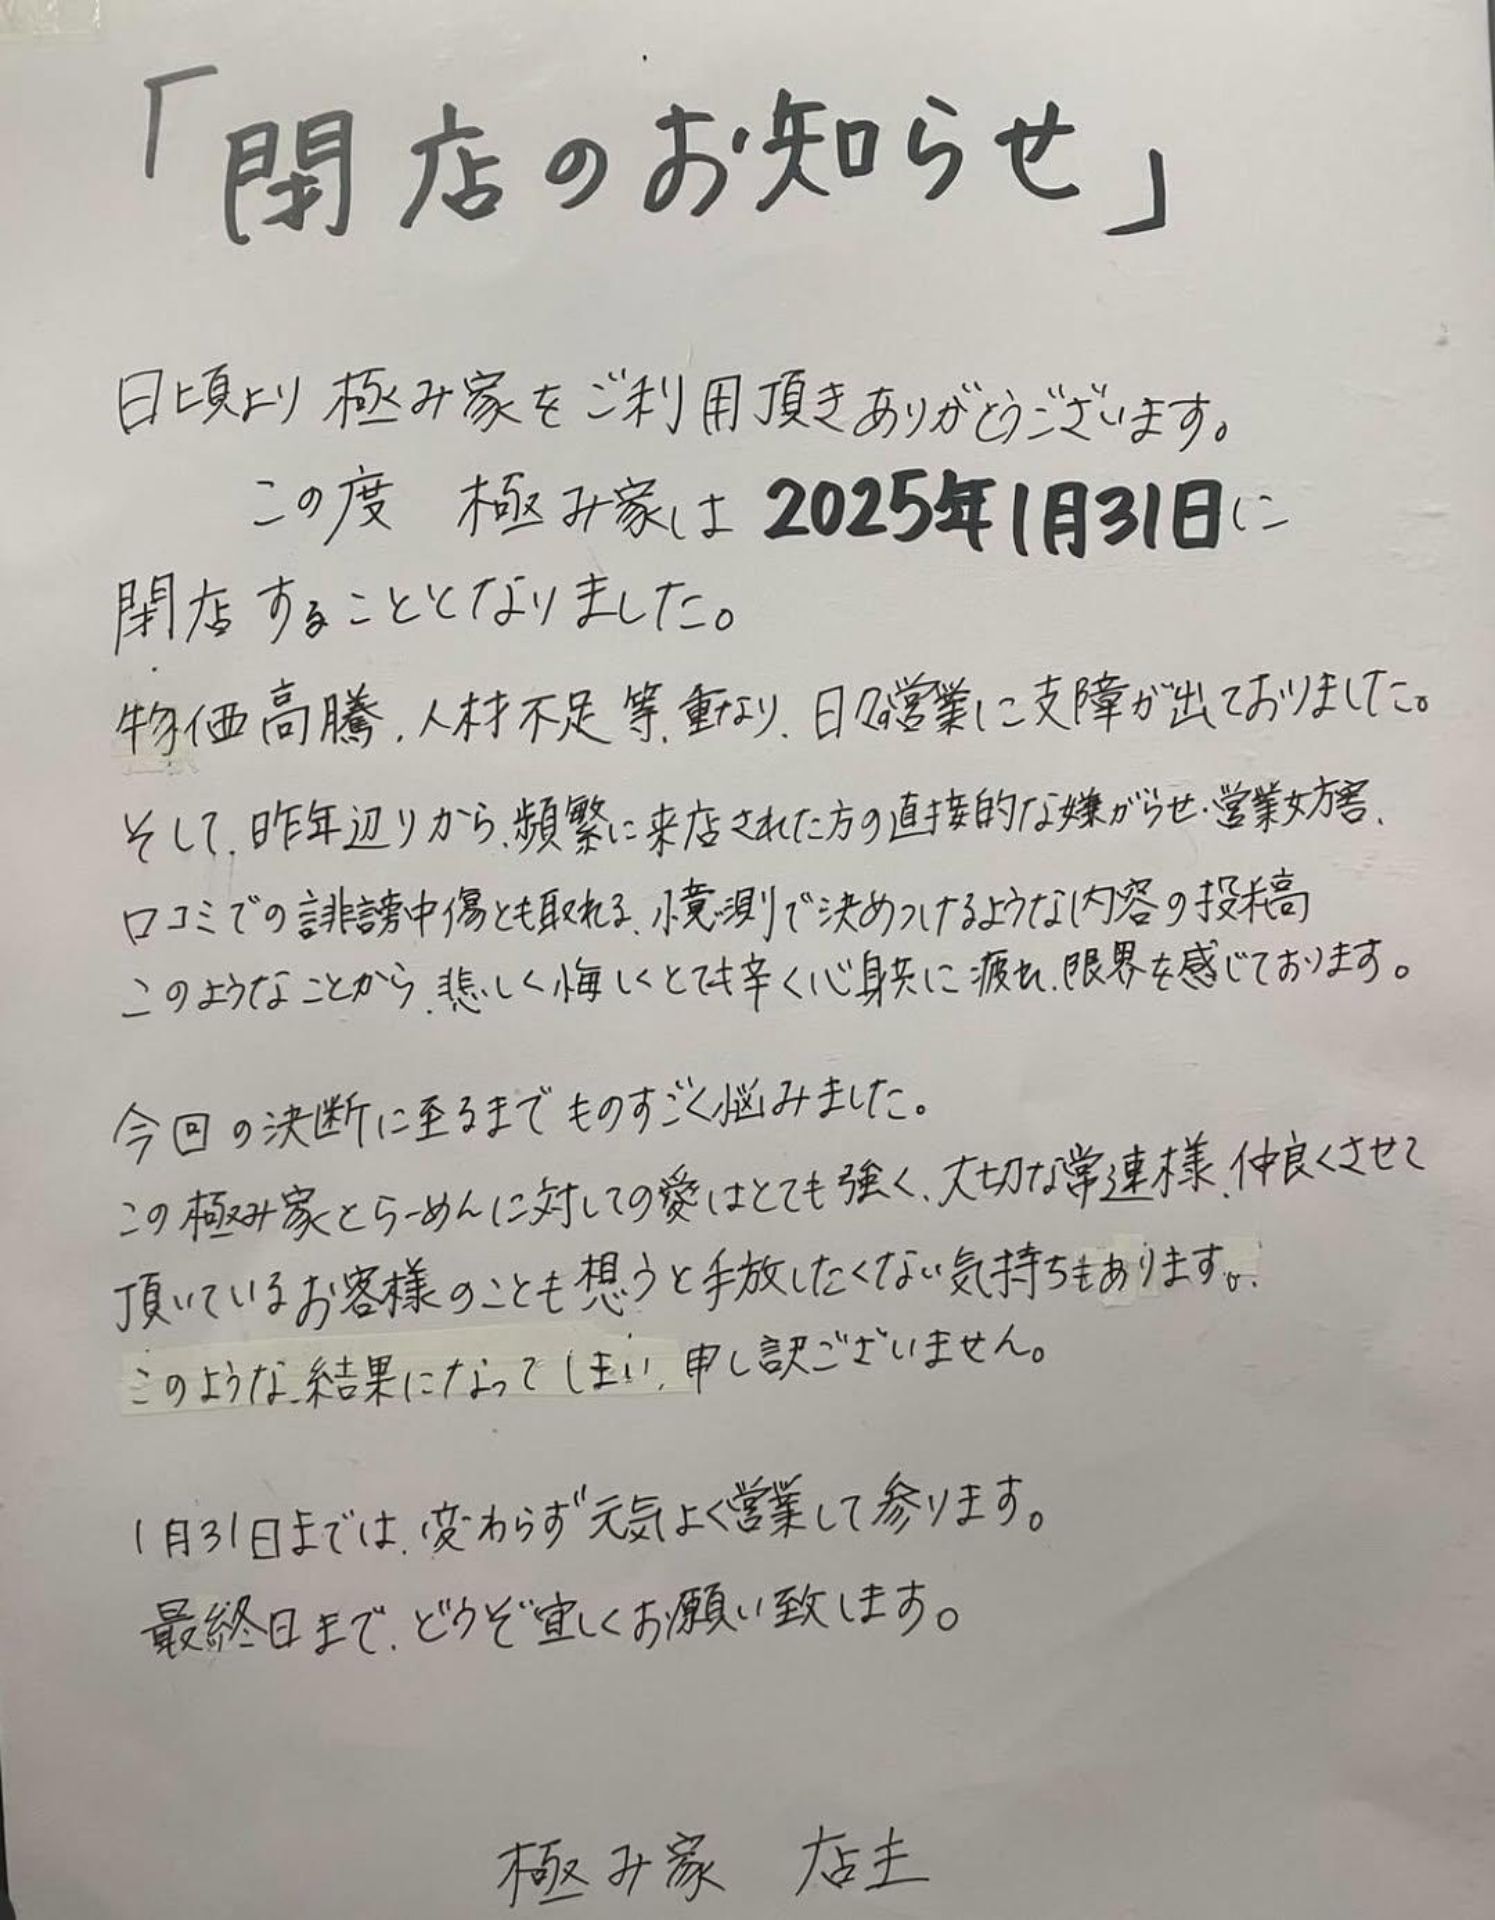 「閉店のお知らせ」
日頃より極み家をご利用頂きありがとうございます。
この度 極み家は2025年1月31日に
閉店することとなりました。
物価高騰、人材不足等、重なり、日々営業に支障が出ておりました。
そして、昨年辺りから、頻繁に来店された方の直接的な嫌がらせ・営業妨害、
口コミでの誹謗中傷とも取れる、憶測で決めつけるような内容の投稿
このようなことから、悲しく悔しくとても辛く心身共に疲れ、限界を感じております。
今回の決断に至るまでものすごく悩みました。
この極み家とらーめんに対しての愛はとても強く、大切な常連様、仲良くさせて
頂いているお客様のことも想うと手放したくない気持ちもあります。
このような結果になってしまい、申し訳ございません。
1月31日までは、変わらず元気よく営業して参ります。
最終日まで、どうぞ宜しくお願い致します。
極み家 店主